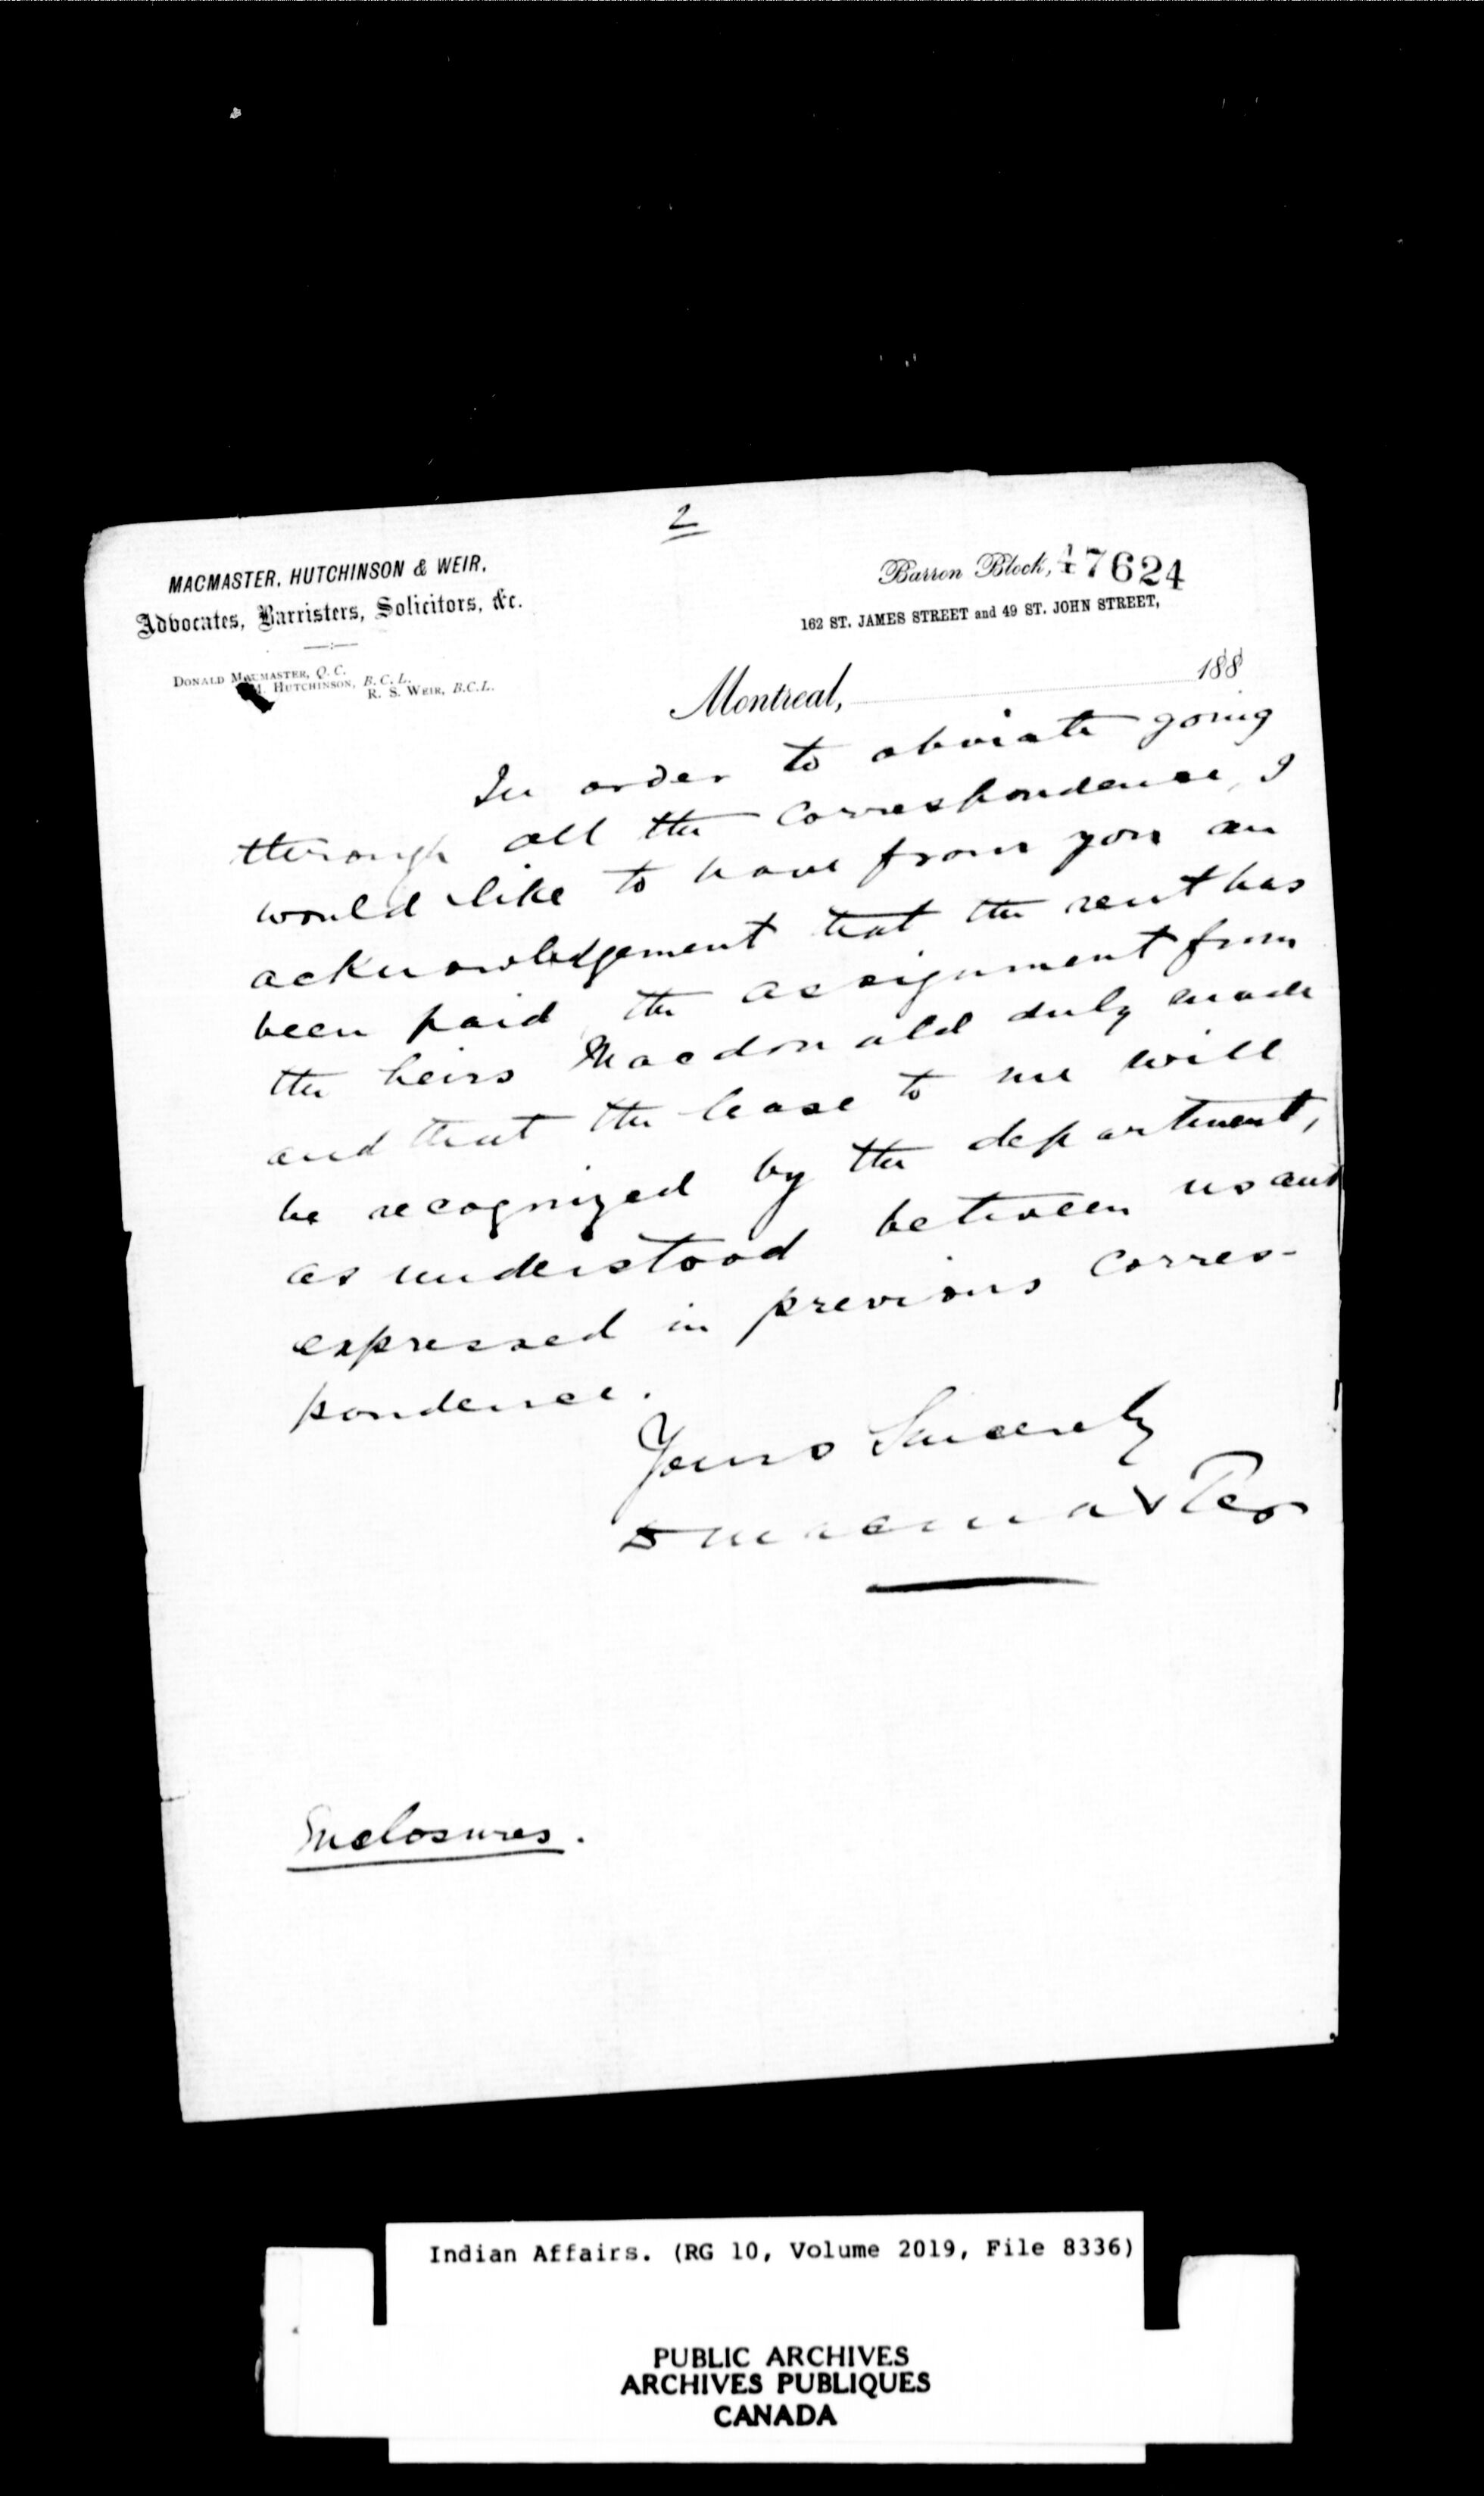 2
MACMASTER, HUTCHINSON & WEIR,
Advocates, Barristers, Solicitors, &c.
DONALD MACMASTER, Q.C.
M. HUTCHINSON, B.C.L.
R. S. WEIR, B.C.L.
Barron Block, 47624
162 ST. JAMES STREET and 49 ST. JOHN STREET,
Montreal, 188
In order to obviate going
through all the correspondence, I
would like to have from you an
acknowledgement that the rent has
been paid, the assignment from
the heirs Macdonald duly made
and that the lease to me will
be recognized by the department,
as understood between us and
expressed in previous corres-
pondence.
Yours Sincerely
D Macmaster
Enclosures.
Indian Affairs. (RG 10, Volume 2019, File 8336)
PUBLIC ARCHIVES
ARCHIVES PUBLIQUES
CANADA